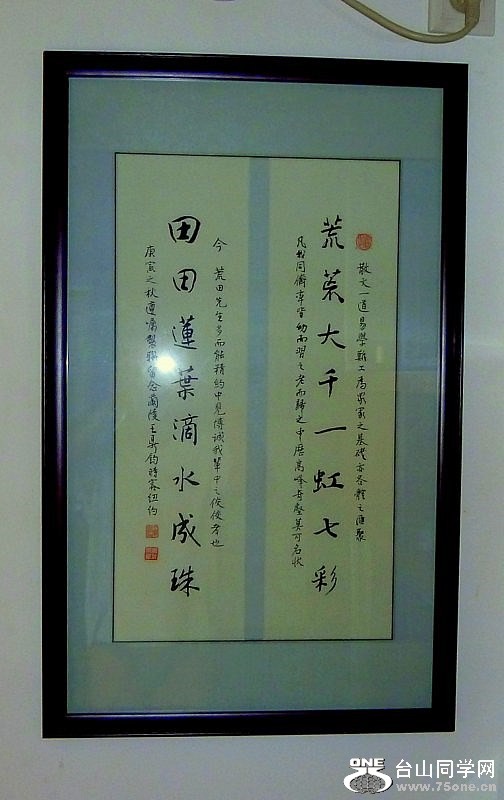 散文一道易學難工為衆家之基礎亦各體之匯聚
荒荒大千一虹七彩
凡我同儕率皆幼而習之老而歸之中歷高峰奇壑莫可名狀
今 荒田先生多而能精約中見博誠我輩中之佼佼者也
田田蓮葉滴水成珠
庚寅之秋遵屬製聯留念蘭陵王鼎鈞時客紐約
ONE
台山同学网
www.75one.cn